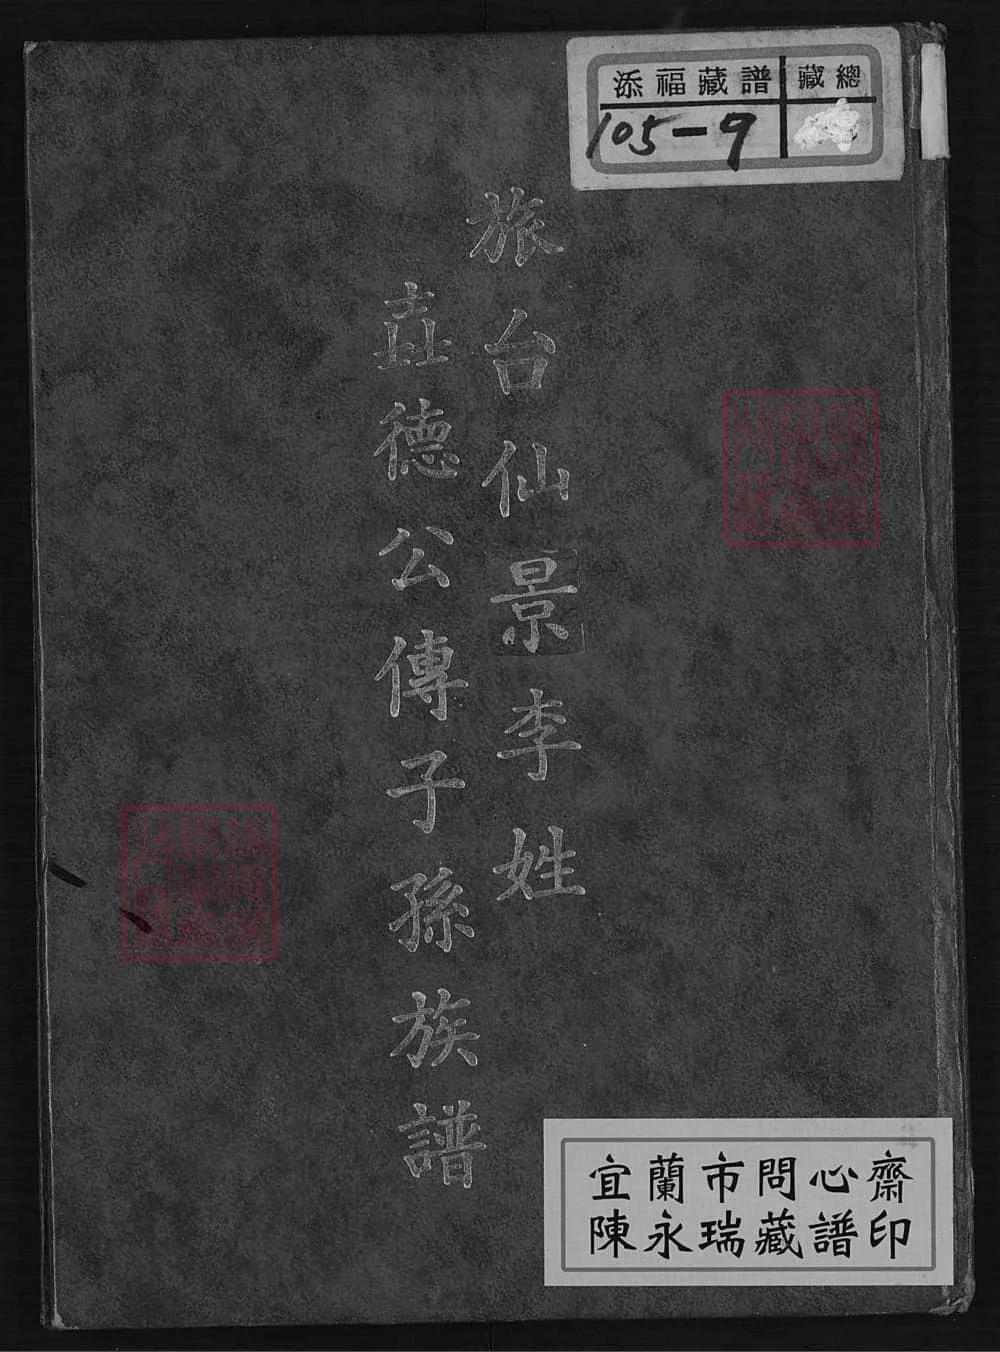 添福藏譜 藏總
105-9
旅台仙景李姓
壵德公傳子孫族譜
宜蘭市問心齋
陳永瑞藏譜印